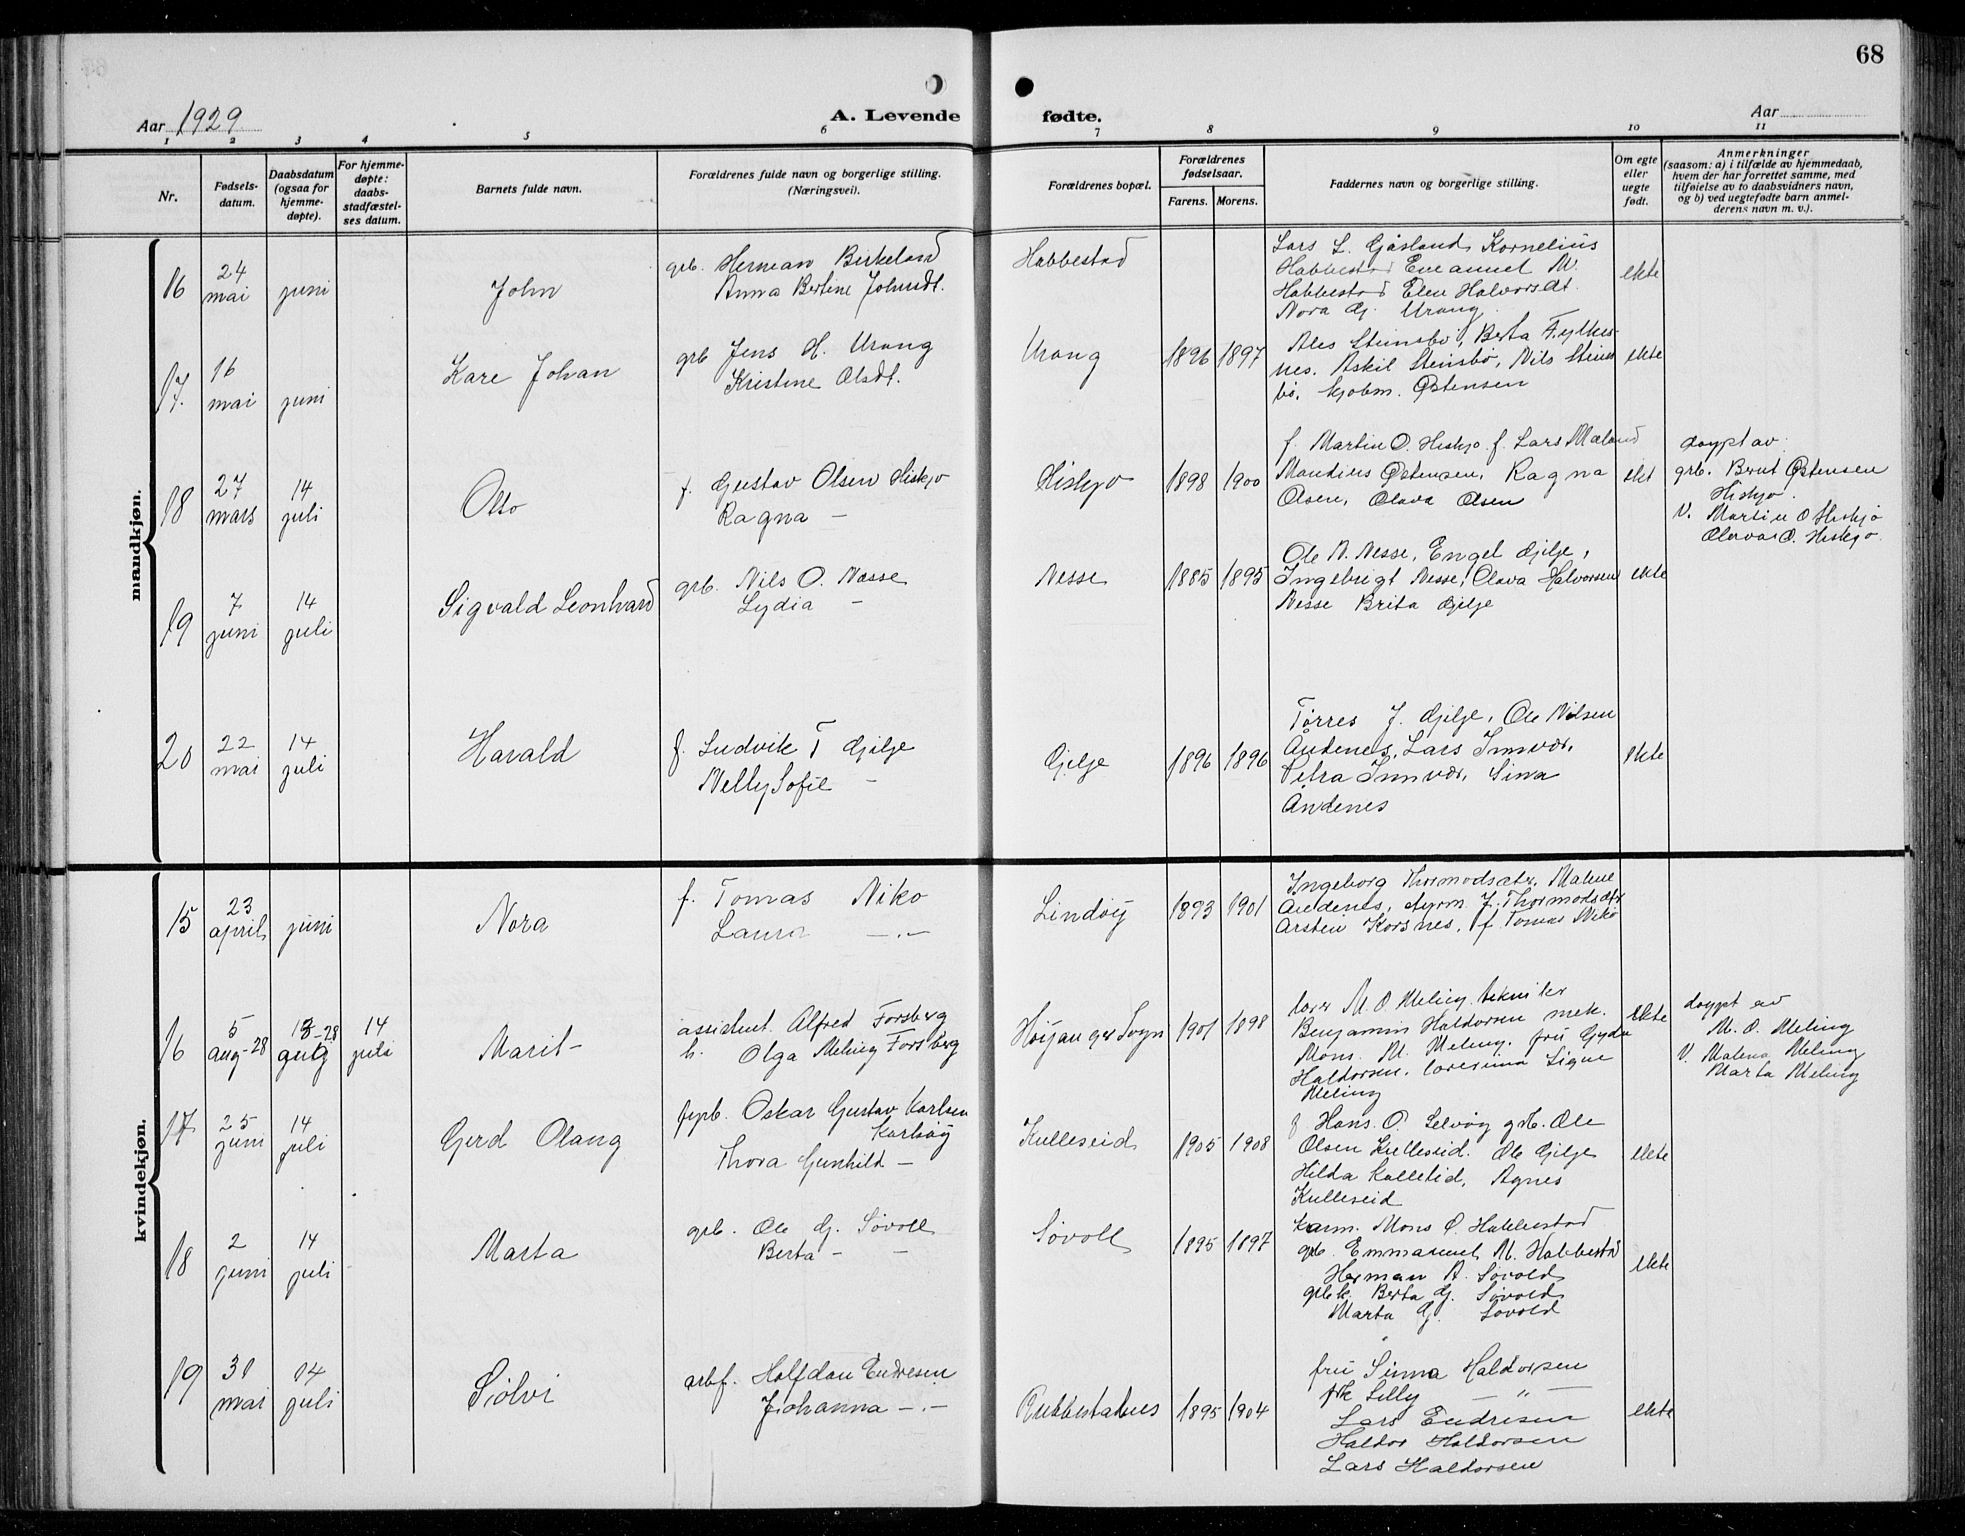 68
Aar 1929
A. Levende fødte.
Aar
1 2 3 4 5 6 7 8 9 10 11
Nr.
Fødsels-
datum.
Daabsdatum
(ogsaa for
hjemme-
døpte).
For hjemme-
døpte:
daabs-
stadfæstel-
ses datum.
Barnets fulde navn.
Forældrenes fulde navn og borgerlige stilling.
(Næringsvei).
Forældrenes bopæl.
Forældrenes
fødselsaar.
Farens. Morens.
Faddernes navn og borgerlige stilling.
Om egte
eller
uegte
født.
Anmerkninger
(saasom: a) i tilfælde av hjemmedaab,
hvem der har forrettet samme, med
tilføielse av to daabsvidners navn,
og b) ved uegtefødte barn anmel-
derens navn m. v.).
mandkjøn.
16
24
mai
juni
John
grb. Herman Birkeland
Anna Bertine Johnsdt.
Habbestad
Lars L. Gåsland, Kornelius
Habbestad Emanuel M.
Habbestad Elen Halvorsdt.
Nora Gj. Urang
ekte
17.
16
mai
juni
Kare Johan
grb Jens H. Urang
Kristine Olsdt.
Urang
1896
1897
Ales Steinsbø, Berta Fylkes-
nes. Askil Steinsbø, Nils Steins
bø. skjobm. Østensen
ekte
18
27
mars
14
juli
Otto
f. Gustav Olsen Hiskjo
Ragna –
Hiskjo
1898
1900
f. Martin O. Hiskjo f. Lars Mæland
Mandius Østensen, Ragna
Olsen, Olava Olsen
ekt
døypt av
grb. Bernt Østensen
Hiskjo.
V. Martin O Hiskjo
O. Hiskjo.
19
7
juni
14
juli
Sigvald Leonhard
grb. Nils O. Næsse
Lydia –
Nesse
1885
1895
Ole N. Nesse, Engel Gjelje,
Ingebrigt Nesse, Olava Halvorsen
Nesse Brita Gjelje
ekte
20
22
mai
14
juli
Harald
f. Ludvik T Gjelje
Nelly Sofie –
Gjelje
1896
1896
Tørres J. Gjelje, Ole Nilsen
Andenes, Lars Innvær,
Petra Innvær, Sina
Andenes
ekte
kvindekjøn.
15
23
april
juni
Nora
f. Tomas Niko
Laura –.–
Lindøy
1893
1901
Ingeborg Thormodsæter, Malene
Andenes, styrm. J. Thormodsæter
Arsten Korsnes, f. Tomas Niko
16
5
aug-28
13-28
aug
14
juli
Marit
assistent. Alfred Forsberg
h. Olga Meling Forsberg
Høyanger Sogn
1901
1898
lærer M. O Meling. tekniker
Benjamin Haldorsen mek.
Mons. M. Meling. fru Gyda
Haldorsen. lærerinna Signe
Meling
ekte
døypt av
M. O. Meling
V. Malena Meling
Marta Meling
17
25
juni
14
juli
Gerd Olaug
Oskar Gustav Karlsen
Karlsøy
Thora Gunhild –
Kulleseid
1905
1908
f Hans. O. Selvåg grb. Ole
Olsen Kulleseid. Ole Gjelje
Hilda Kulleseid, Agnes
Kulleseid
ekte
18
2
juni
14
juli
Marta
grb. Ole Gj. Søvoll
Berta – –
Søvoll
1895
1897
Mons O. Habbestad
grb. Emmanuel M. Habbestad
Herman A. Søvold
grbk. Berta Gj. Søvold
Marta Gj. Søvold
ekte
19
31
mai
14
juli
Sølvi
arbf. Halfdan Endresen
Johanna –.–
Rubbestadnes
1895
1904
fru Sinna Haldorsen
frk Lilly – " –
Lars Endresen
Haldor Haldorsen
Lars Haldorsen
ekte